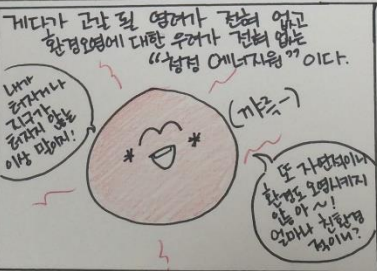 게다가 고갈 될 염려가 전혀 없고
환경오염에 대한 우려가 전혀 없는
“청정 에너지원”이다.
내가
터지거나
지구가
터지지 않는
이상 말이지!
(까륵~)
또 자연적이니
환경도 오염시키지
않아~!
얼마나 친환경
적이니?